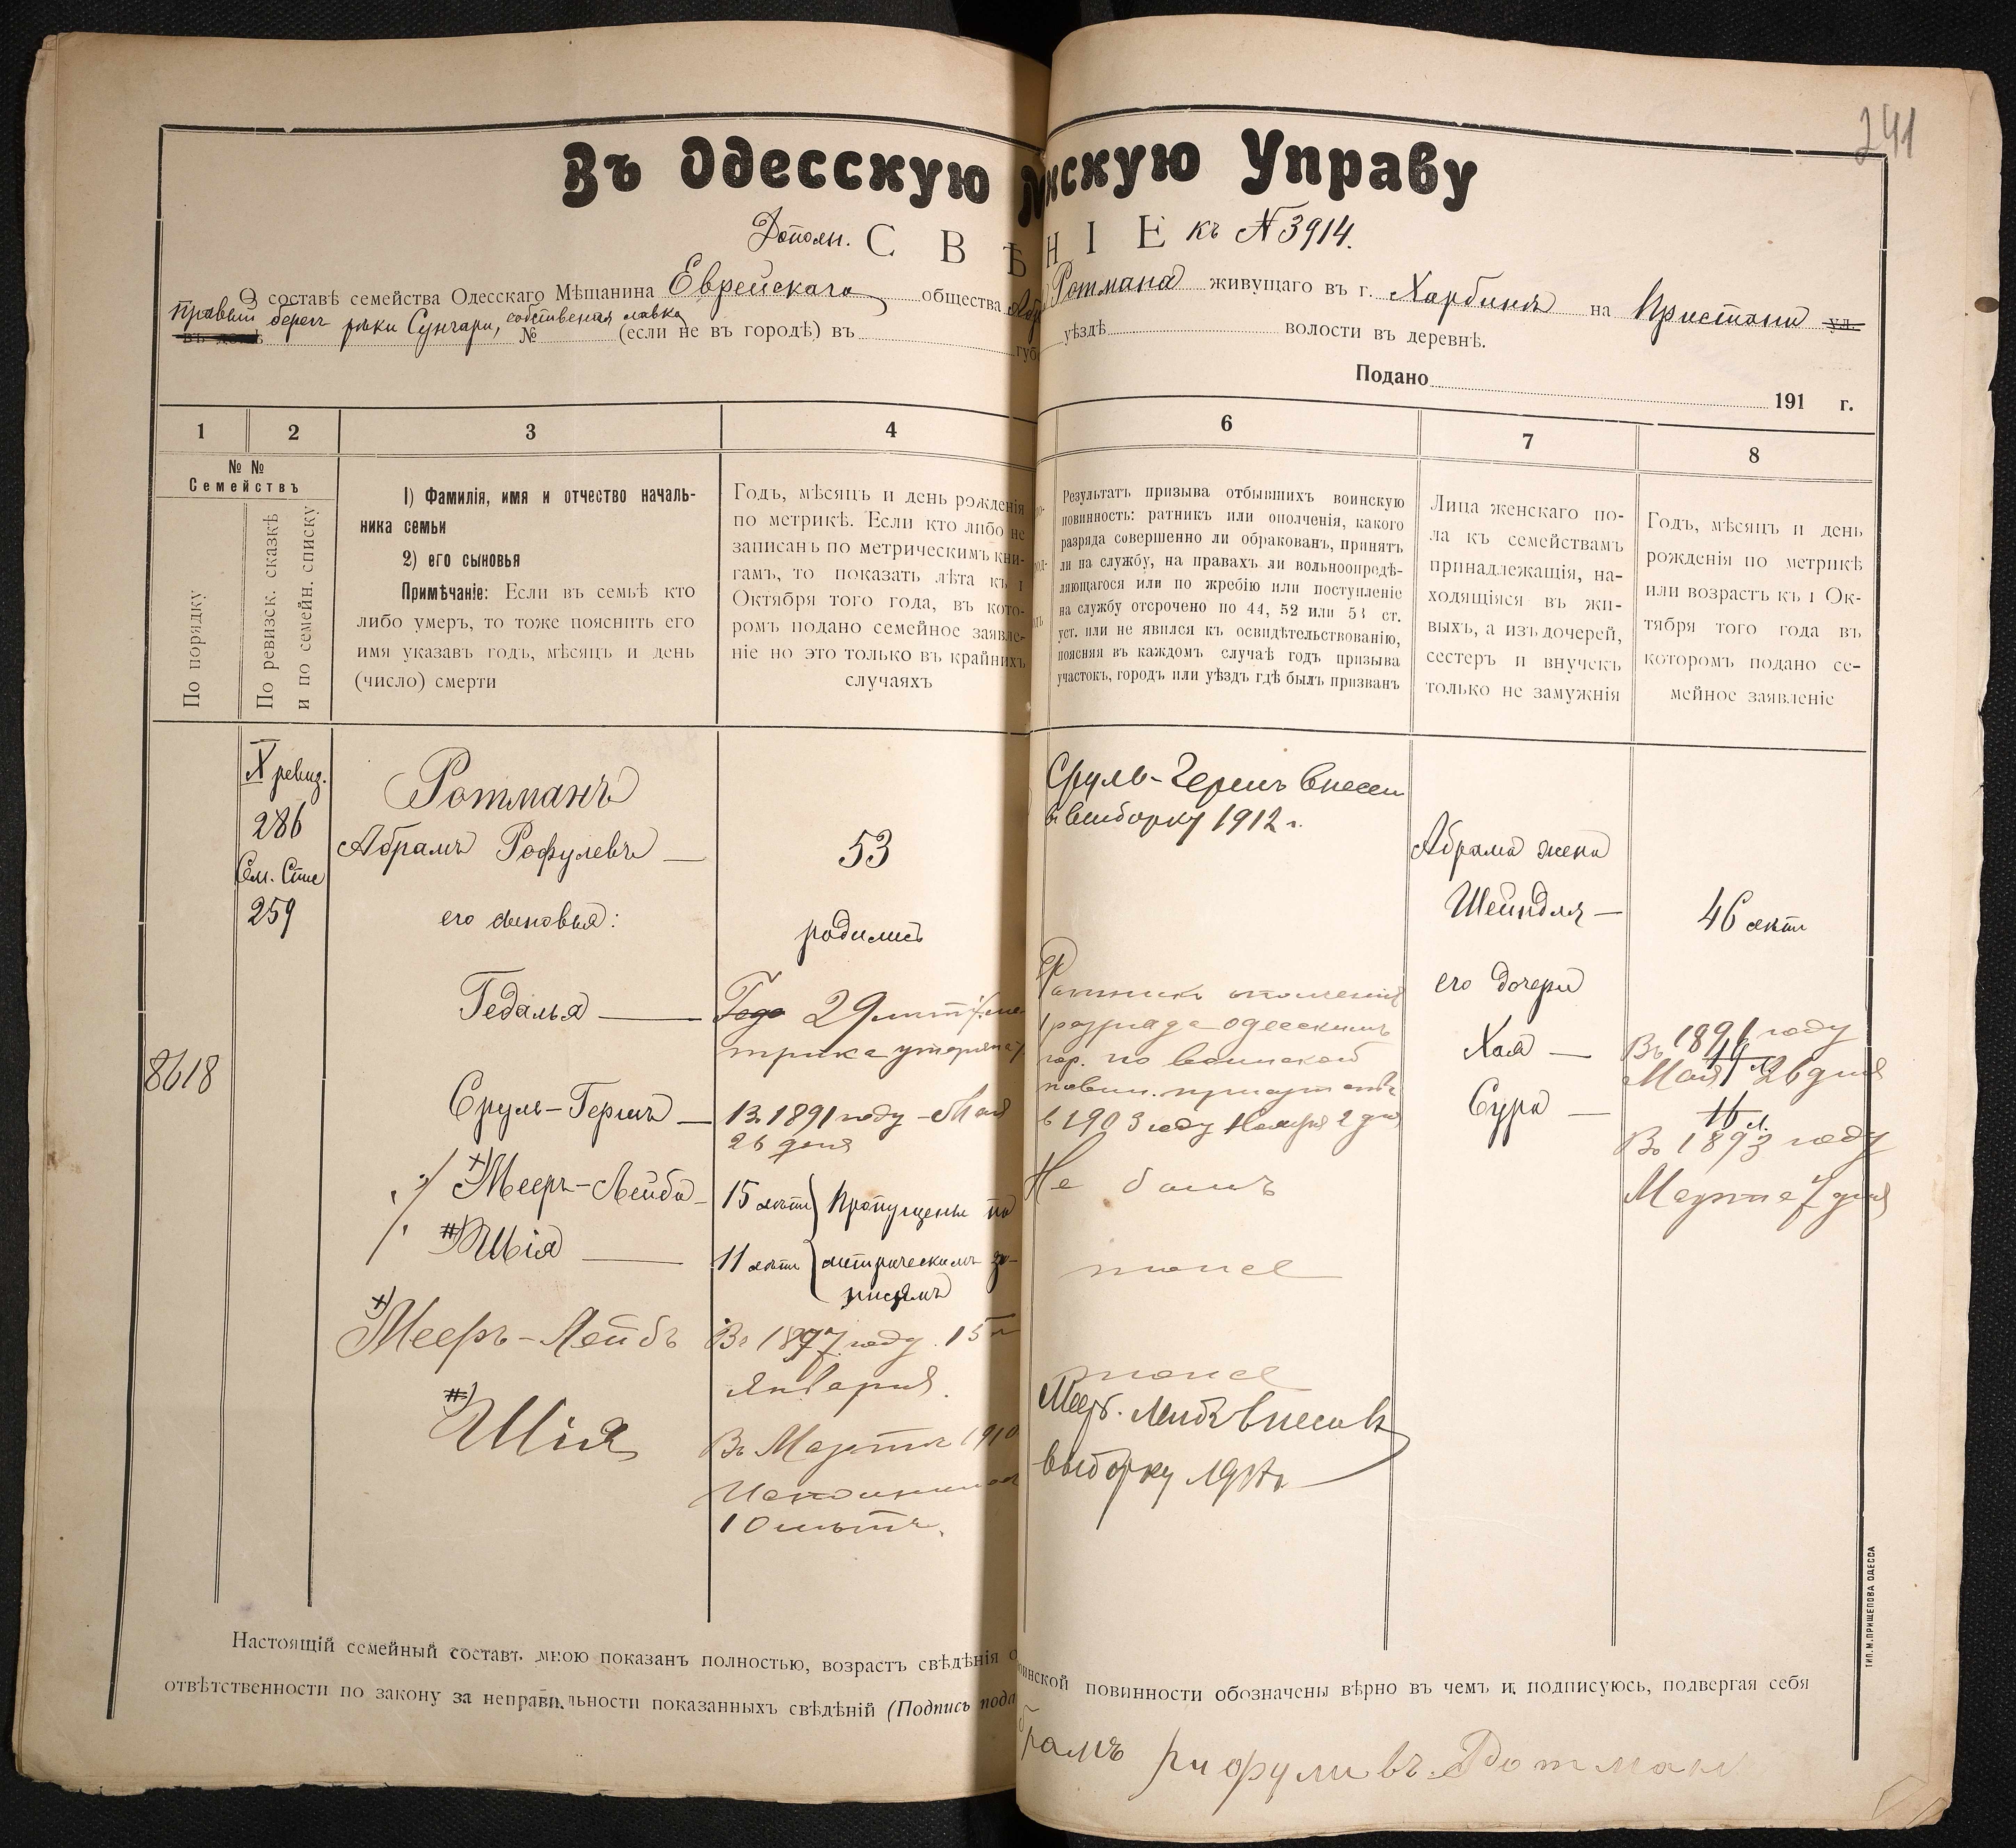 241
Въ Одесскую нскую Управу
Дополн. С В Ѣ Н І Е къ № 3914.
О составѣ семейства Одесскаго Мѣщанина Еврейскаго общества Ротмана живущаго въ г. Харбинѣ на Пристани ул.
правый берегъ рѣки Сунгари, собственная лавка
№ (если не въ городѣ) въ губ уѣздѣ волости въ деревнѣ.
Подано 191 г.
1 2 3 4 6 7 8
№ №
Семействъ
По порядку
По ревизск. сказкѣ
и по семейн. списку
1) Фамилія, имя и отчество началь-
ника семьи
2) его сыновья
Примѣчаніе: Если въ семьѣ кто
либо умеръ, то тоже пояснить его
имя указавъ годъ, мѣсяцъ и день
(число) смерти
Годъ, мѣсяцъ и день рожденія
по метрикѣ. Если кто либо не
записанъ по метрическимъ кни-
гамъ, то показать лѣта къ 1
Октября того года, въ кото-
ромъ подано семейное заявле-
ніе но это только въ крайнихъ
случаяхъ
Результатъ призыва отбывшихъ воинскую
повинность: ратникъ или ополченія, какого
разряда совершенно ли обракованъ, принятъ
ли на службу, на правахъ ли вольноопредѣ-
ляющагося или по жребію или поступленіе
на службу отсрочено по 44, 52 или 53 ст.
уст. или не явился къ освидѣтельствованію,
поясняя въ каждомъ случаѣ годъ призыва
участокъ, городъ или уѣздъ гдѣ былъ призванъ
Лица женскаго по-
ла къ семействамъ
принадлежащія, на-
ходящіяся въ жи-
выхъ, а изъ дочерей,
сестеръ и внучекъ
только не замужнія
Годъ, мѣсяцъ и день
рожденія по метрикѣ
или возрастъ къ 1 Ок-
тября того года въ
которомъ подано се-
мейное заявленіе
8618
X ревиз.
286
Сем. Спис
259
Ротманъ
Абрамъ Рофулевъ —
его сыновья:
Гедалья —
Сруль-Гершъ —
+) Мееръ-Лейба —
#) Шія —
+) Мееръ-Лейбъ
#) Шія
53
родились
29 лѣтъ (ме
трика утеряна)
Въ 1891 году Мая
26 дня
15 лѣтъ } Пропущены по
11 лѣтъ } метрическимъ за-
писямъ
Въ 1897 году 15 го
Января.
Въ Мартѣ 1910
Исполнилося
10 лѣтъ.
Сруль-Гершъ внесен
в выборку 1912 г.
Ратникъ ополченія
1 разряда одесскимъ
гор. по воинской
повин. присутств
в 1903 году Ноября 2 дня
Не былъ
тоже
тоже
Меер. Лейбъ внесен в
выборку
Абрама жена
Шейндля —
его дочери
Хая —
Сура —
46 лѣтъ
Въ 1891 году
Мая 26 дня
16 л.
Въ 1893 году
Марта 7 дня
Настоящій семейный составъ мною показанъ полностью, возрастъ свѣдѣнія о оинской повинности обозначены вѣрно въ чемъ и подписуюсь, подвергая себя
отвѣтственности по закону за неправильности показанныхъ свѣдѣній (Подпись пода
брамъ рифуливъ Ротман
ТИП. М. ПРИЩЕПОВА ОДЕССА